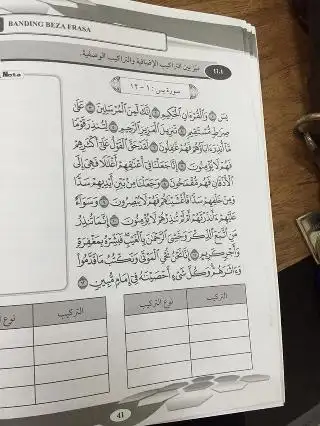 BANDING BEZA FRASA
Nota
١.٤ ميز بين التراكيب الإضافية والتراكيب الوصفية.
سورة يس : ١ - ١٢
يسٓ ۝ وَٱلْقُرْءَانِ ٱلْحَكِيمِ ۝ إِنَّكَ لَمِنَ ٱلْمُرْسَلِينَ ۝ عَلَىٰ
صِرَٰطٍ مُّسْتَقِيمٍ ۝ تَنزِيلَ ٱلْعَزِيزِ ٱلرَّحِيمِ ۝ لِتُنذِرَ قَوْمًا
مَّآ أُنذِرَ ءَابَآؤُهُمْ فَهُمْ غَٰفِلُونَ ۝ لَقَدْ حَقَّ ٱلْقَوْلُ عَلَىٰٓ أَكْثَرِهِمْ
فَهُمْ لَا يُؤْمِنُونَ ۝ إِنَّا جَعَلْنَا فِىٓ أَعْنَٰقِهِمْ أَغْلَٰلًا فَهِىَ إِلَى
ٱلْأَذْقَانِ فَهُم مُّقْمَحُونَ ۝ وَجَعَلْنَا مِنۢ بَيْنِ أَيْدِيهِمْ سَدًّا
وَمِنْ خَلْفِهِمْ سَدًّا فَأَغْشَيْنَٰهُمْ فَهُمْ لَا يُبْصِرُونَ ۝ وَسَوَآءٌ
عَلَيْهِمْ ءَأَنذَرْتَهُمْ أَمْ لَمْ تُنذِرْهُمْ لَا يُؤْمِنُونَ ۝ إِنَّمَا تُنذِرُ
مَنِ ٱتَّبَعَ ٱلذِّكْرَ وَخَشِىَ ٱلرَّحْمَٰنَ بِٱلْغَيْبِ فَبَشِّرْهُ بِمَغْفِرَةٍ
وَأَجْرٍ كَرِيمٍ ۝ إِنَّا نَحْنُ نُحْىِ ٱلْمَوْتَىٰ وَنَكْتُبُ مَا قَدَّمُوا۟
وَءَاثَٰرَهُمْ وَكُلَّ شَىْءٍ أَحْصَيْنَٰهُ فِىٓ إِمَامٍ مُّبِينٍ ۝
التركيب نوع التركيب التركيب نوع
41